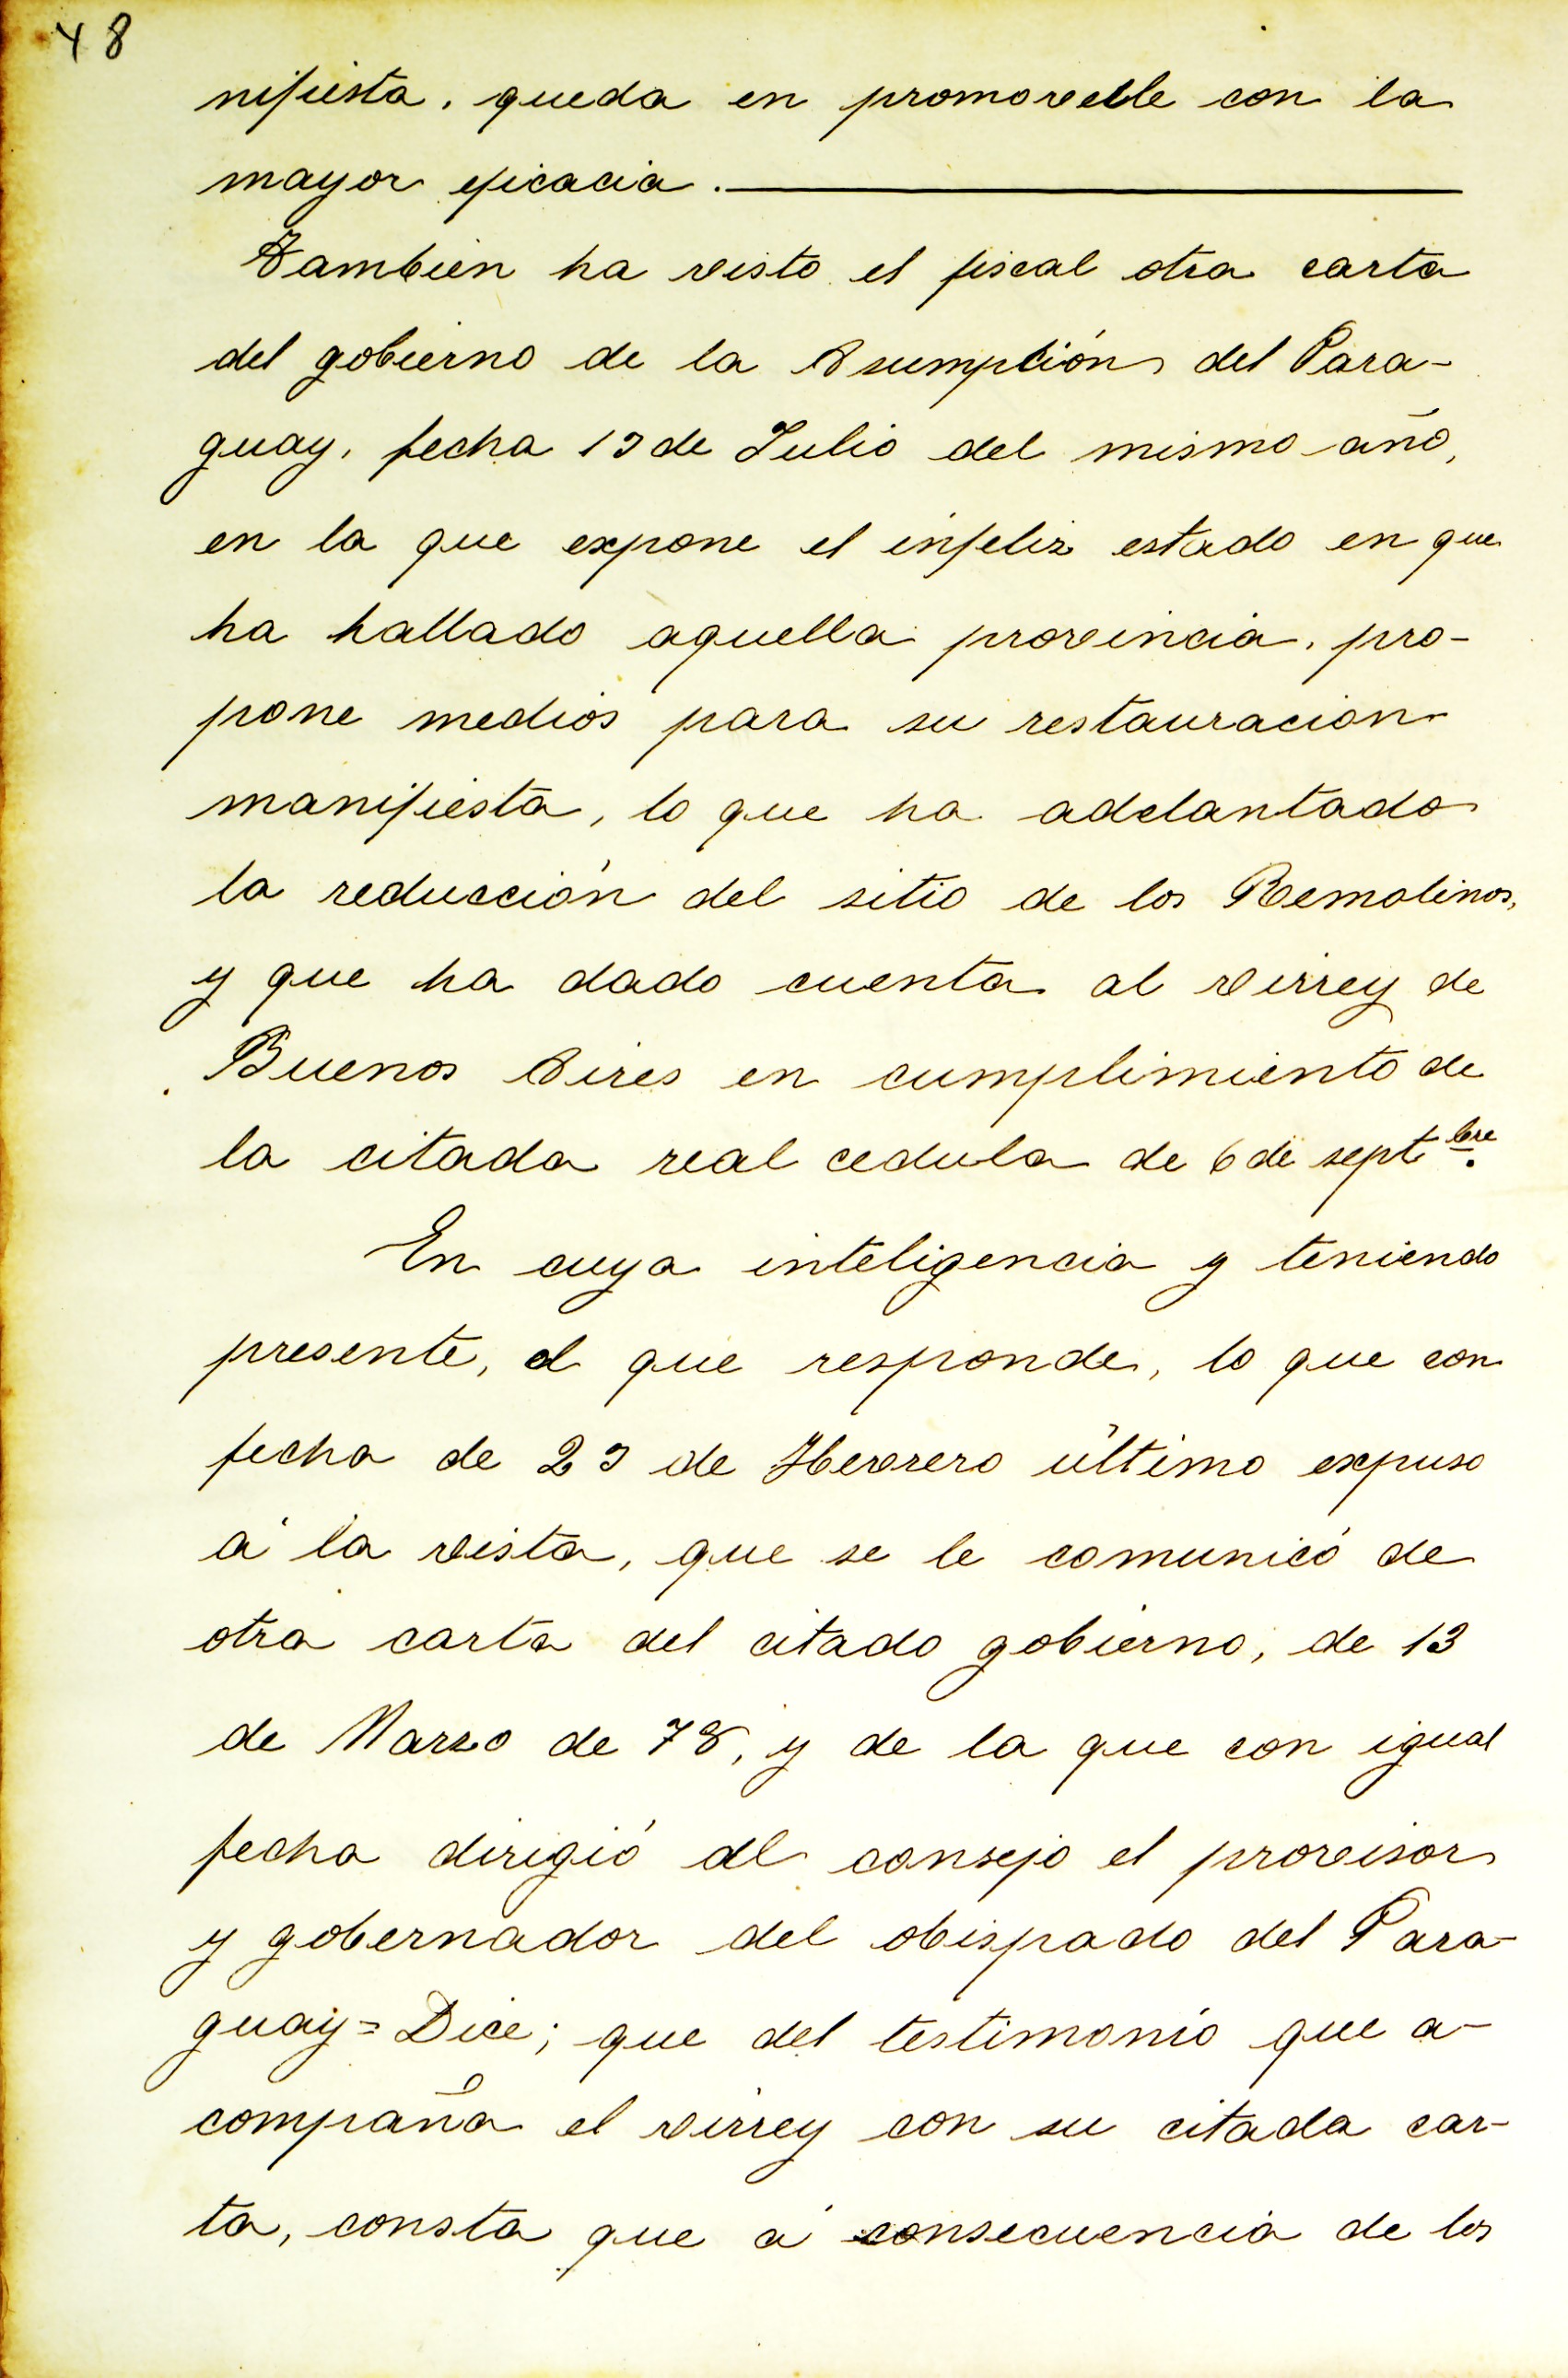 48
nifiesta, queda en promoverlle con la
mayor eficacia.
Tambien ha visto el fiscal otra carta
del gobierno de la Asumpción del Para-
guay, fecha 13 de Julio del mismo año,
en la que expone el infeliz estado en que
ha hallado aquella provincia, pro-
pone medios para su restauracion
manifiesta, lo que ha adelantado
la reducción del sitio de los Remolinos,
y que ha dado cuenta al virrey de
Buenos Aires en cumplimiento de
la citada real cedula de 6 de septbre.
En cuya inteligencia y teniendo
presente, el que responde, lo que con
fecha de 23 de Hebrero último expuso
á la vista, que se le comunicó de
otra carta del citado gobierno, de 13
de Marzo de 78, y de la que con igual
fecha dirigió al consejo el provisor
y gobernador del obispado del Para-
guay= Dice; que del testimonio que a-
compaña el virrey con su citada car-
ta, consta que á consecuencia de los